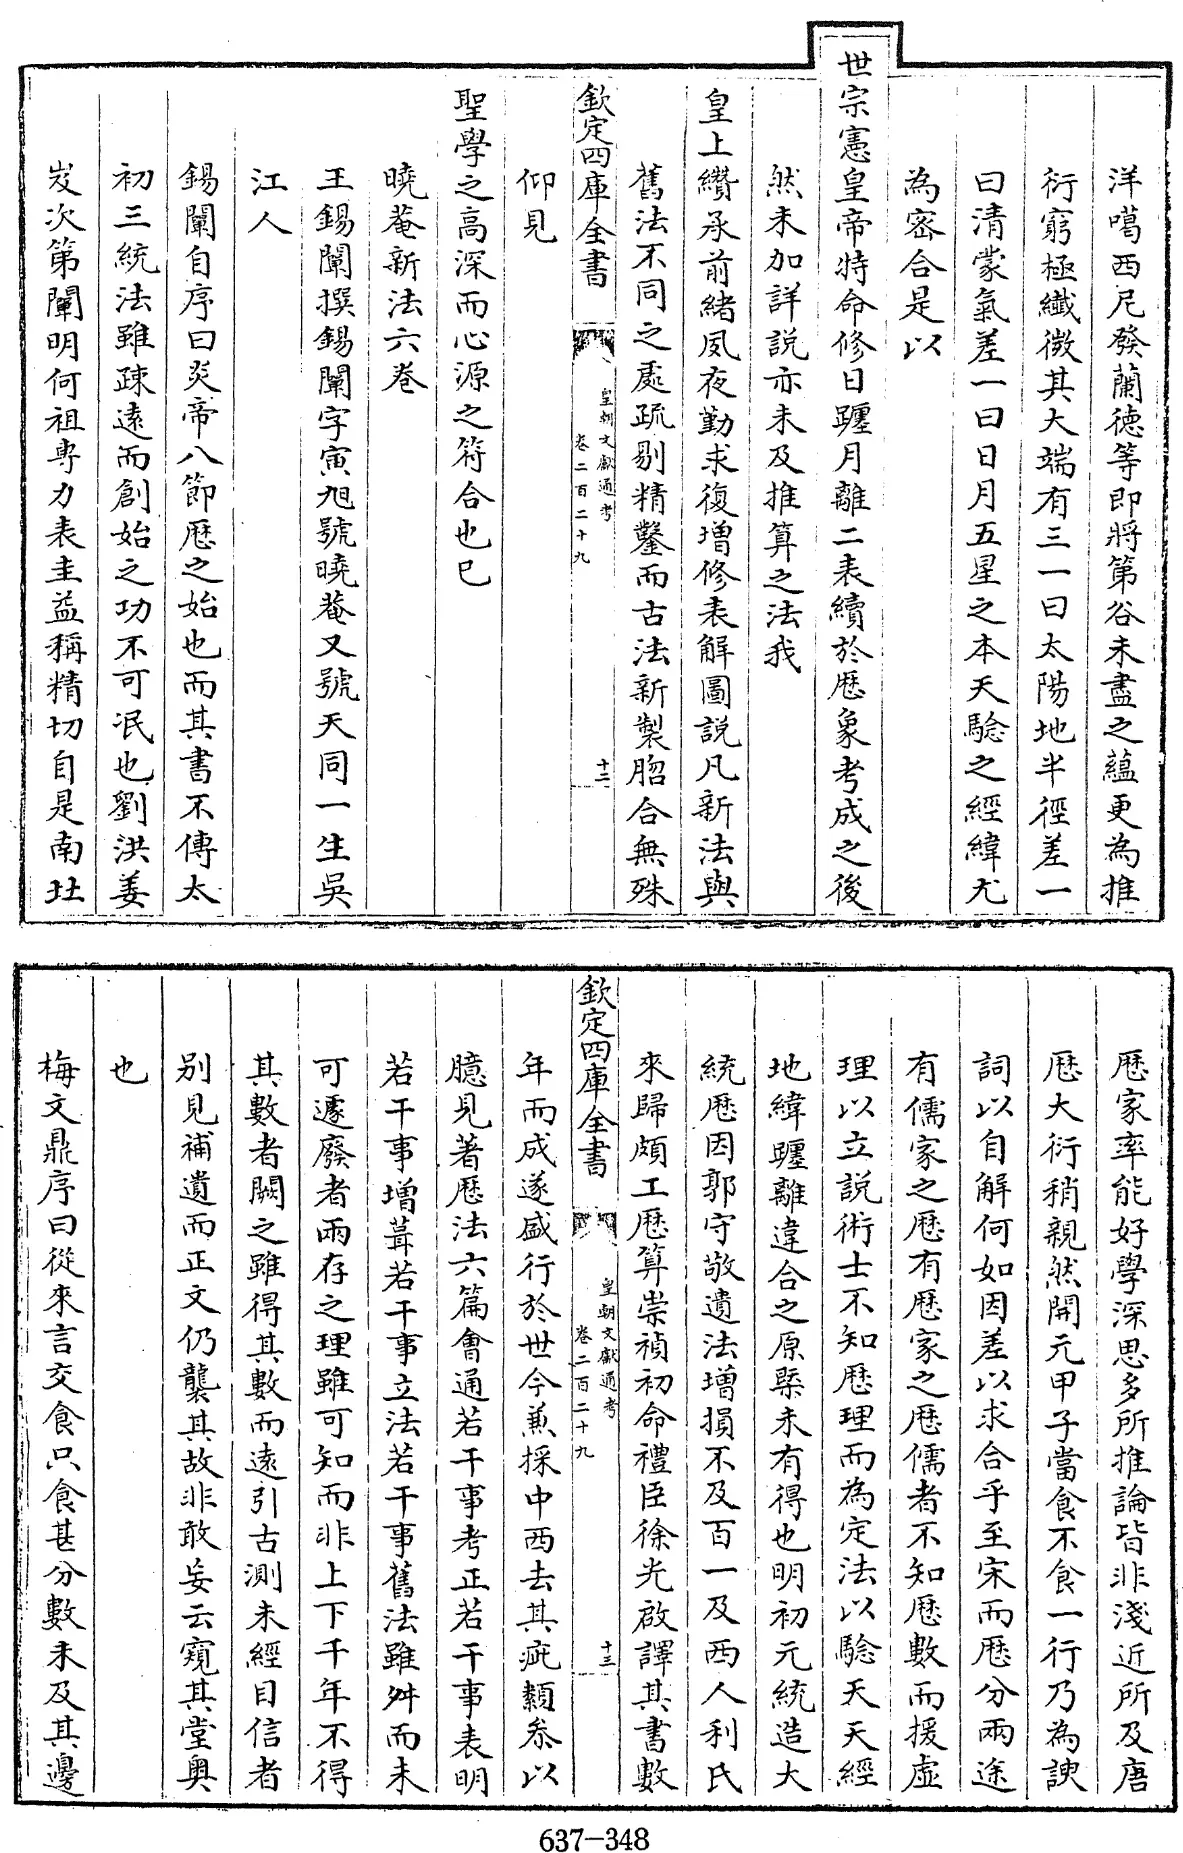 洋噶西尼發蘭德等即將第谷未盡之蘊更為推
衍窮極纖微其大端有三一曰太陽地半徑差一
曰清蒙氣差一曰日月五星之本天驗之經緯尤
為密合是以
世宗憲皇帝特命修日躔月離二表續於厯象考成之後
然未加詳説亦未及推算之法我
皇上纘承前緒夙夜勤求復增修表解圖説凡新法與
舊法不同之處疏剔精鑿而古法新製脗合無殊
欽定四庫全書
皇朝文獻通考
卷二百二十九
十二
仰見
聖學之高深而心源之符合也已
曉菴新法六卷
王錫闡撰錫闡字寅旭號曉菴又號天同一生吳
江人
錫闡自序曰炎帝八節厯之始也而其書不傳太
初三統法雖疎遠而創始之功不可泯也劉洪姜
岌次第闡明何祖專力表圭益稱精切自是南北
厯家率能好學深思多所推論皆非淺近所及唐
厯大衍稍親然開元甲子當食不食一行乃為諛
詞以自解何如因差以求合乎至宋而厯分兩途
有儒家之厯有厯家之厯儒者不知厯數而援虛
理以立説術士不知厯理而為定法以驗天天經
地緯躔離違合之原槩未有得也明初元統造大
統厯因郭守敬遺法增損不及百一及西人利氏
來歸頗工厯算崇禎初命禮臣徐光啟譯其書數
欽定四庫全書
皇朝文獻通考
卷二百二十九
十三
年而成遂盛行於世今兼採中西去其疵纇叅以
臆見著厯法六篇會通若干事考正若干事表明
若干事增葺若干事立法若干事舊法雖舛而未
可遽廢者兩存之理雖可知而非上下千年不得
其數者闕之雖得其數而遠引古測未經目信者
别見補遺而正文仍襲其故非敢妄云窺其堂奥
也
梅文鼎序曰從來言交食只食甚分數未及其邊
637-348